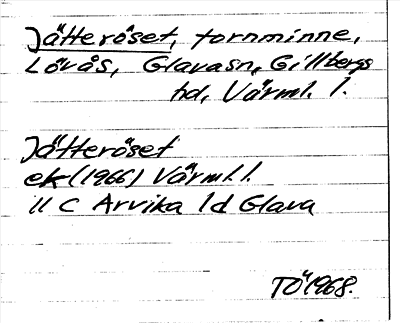 Jätteröset, fornminne,
Lövås, Glava sn, Gillbergs
hd, Värml. l.
Jätteröset
ek (1966) Värml. l.
11 C Arvika 1d Glava
TÖ 1968.